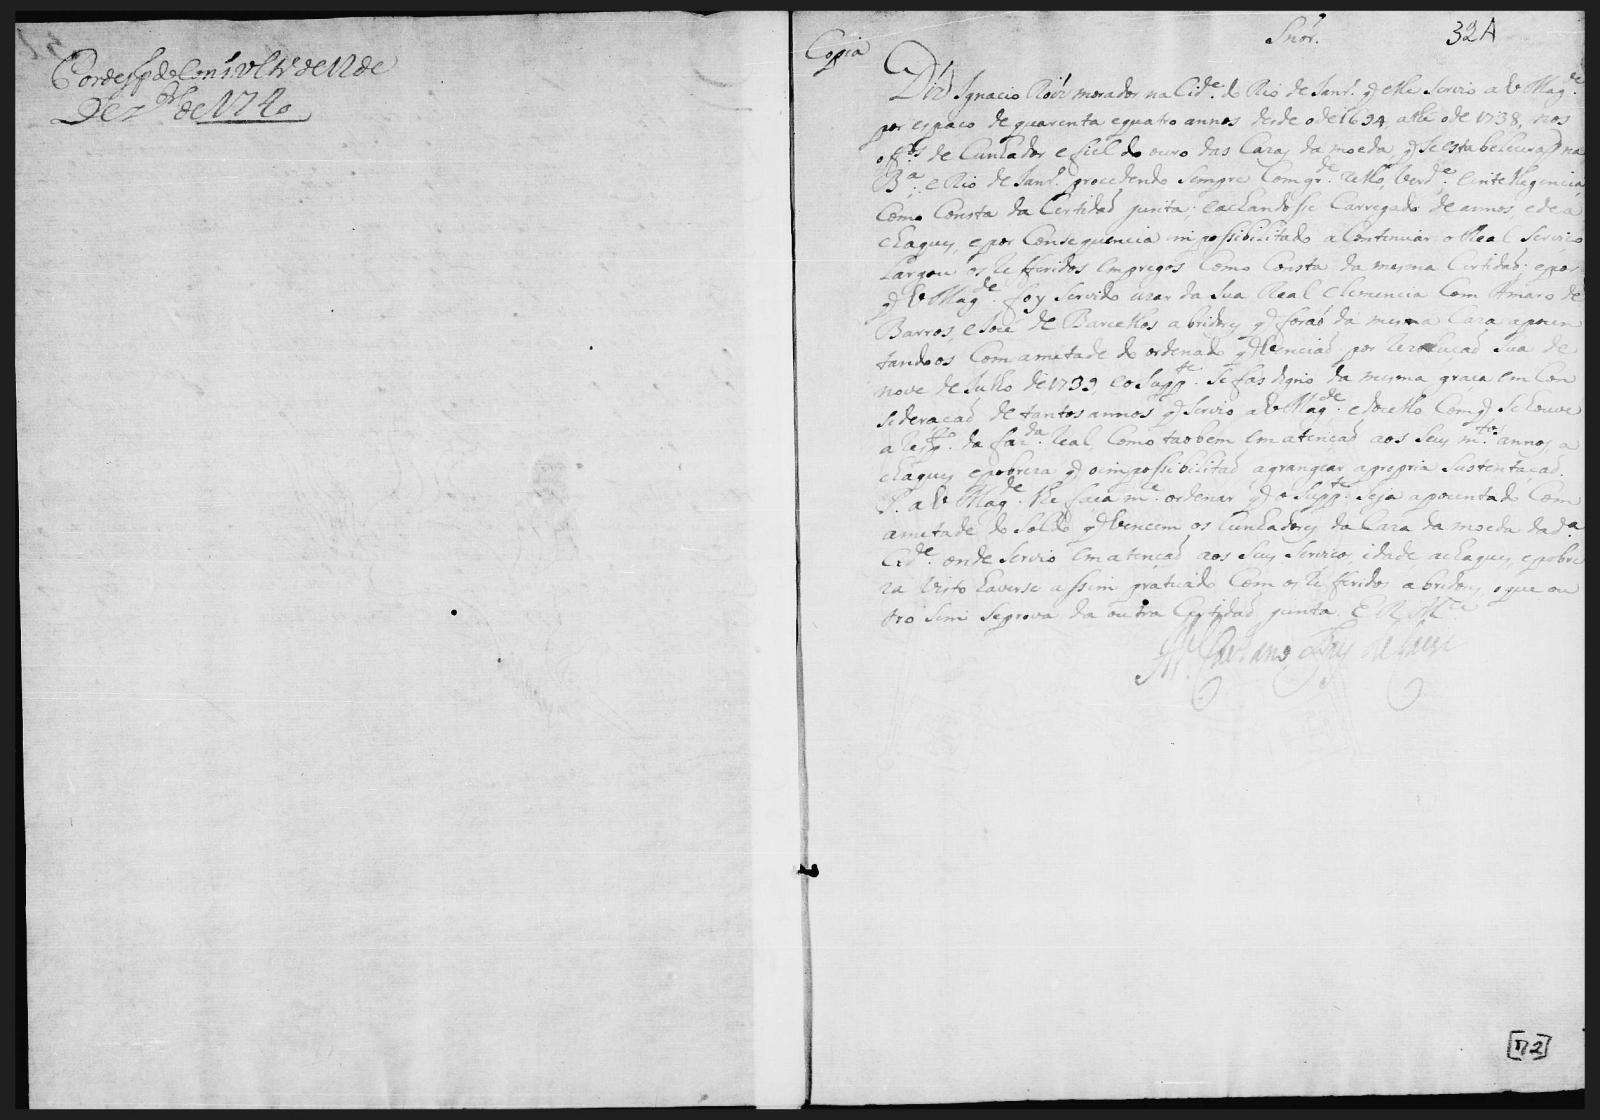 Por desp. do Cons. Vltr.º de 12 de
Dezbr.º de 1740
Copia
Snõr.
32A
Diz Ignacio Roiz morador na Cid.e do Rio de Janr.º q̃ elle Servio a V Mag.de
por espaço de quarenta equatro annos desde o de 1694, athe o de 1738, nos
off.os de Cunhador e fiel do ouro das Cazas da moeda q̃ se estabelecerão na
B.a e Rio de Janr.º procedendo sempre Com gr.de zello, verd.e e intelligencia
Como Consta da Certidaõ junta; e achandosse Carregado de annos, e de a
chaques, e por Consequencia impossibilitado a Continuar o Real Serviço
Largou os refferidos empregos Como Consta da mesma Certidaõ: e por
q̃ V Mag.de foy Servido uzar da Sua Real Clemencia Com Amaro de
Barros, e Joze de Barcellos abridores q̃ foraõ da mesma Caza apozen
tandoos Com ametade do ordenado q̃ venciaõ por rezoluçaõ Sua de
nove de Julho de 1739, e o Supp.te Se fas digno da mesma graça em Con
sideraçaõ de tantos annos q̃ Servio a V Mag.de e do zello Com q̃ Se houve
a resp.to da faz.da Real, Como taõbem em atençaõ aos Seus m.tos annos, a
chaques, e pobreza q̃ o impossibilitaõ a grangear a propria Sustentaçaõ.
P. a V Mag.de lhe faça m.ce ordenar q̃ o Supp.te Seja apozentado Com
ametade do Soldo q̃ vencem os Cunhadores da Caza da moeda da d.a
Cid.e onde Servio em atençaõ aos Seus Serviços, idade achaques, e pobre
za visto haverse assim praticado Com os refferidos abridores, o que ou
tro Sim Se prova da outra Certidaõ junta. E R M.ce
M.el Caetano Lopes de Lavre
[1/2]